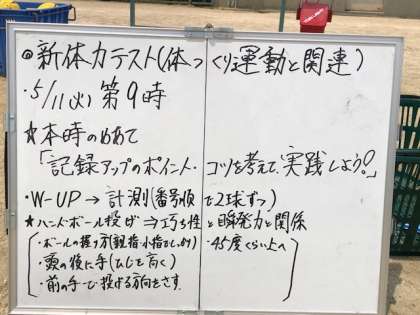 ◎新体力テスト(体つくり運動と関連)
・5/11(火) 第9時
☆本時のめあて
「記録アップのポイント・コツを考えて、実践しよう!」
・W-UP → 計測(番号順で2球ずつ)
★ハンドボール投げ ⇒ 巧ち性と瞬発力と関係
・ボールの握り方(親指・小指をしめる) ・45度くらい上へ
・頭の後に手(ひじを高く)
・前の手で投げる方向をさす